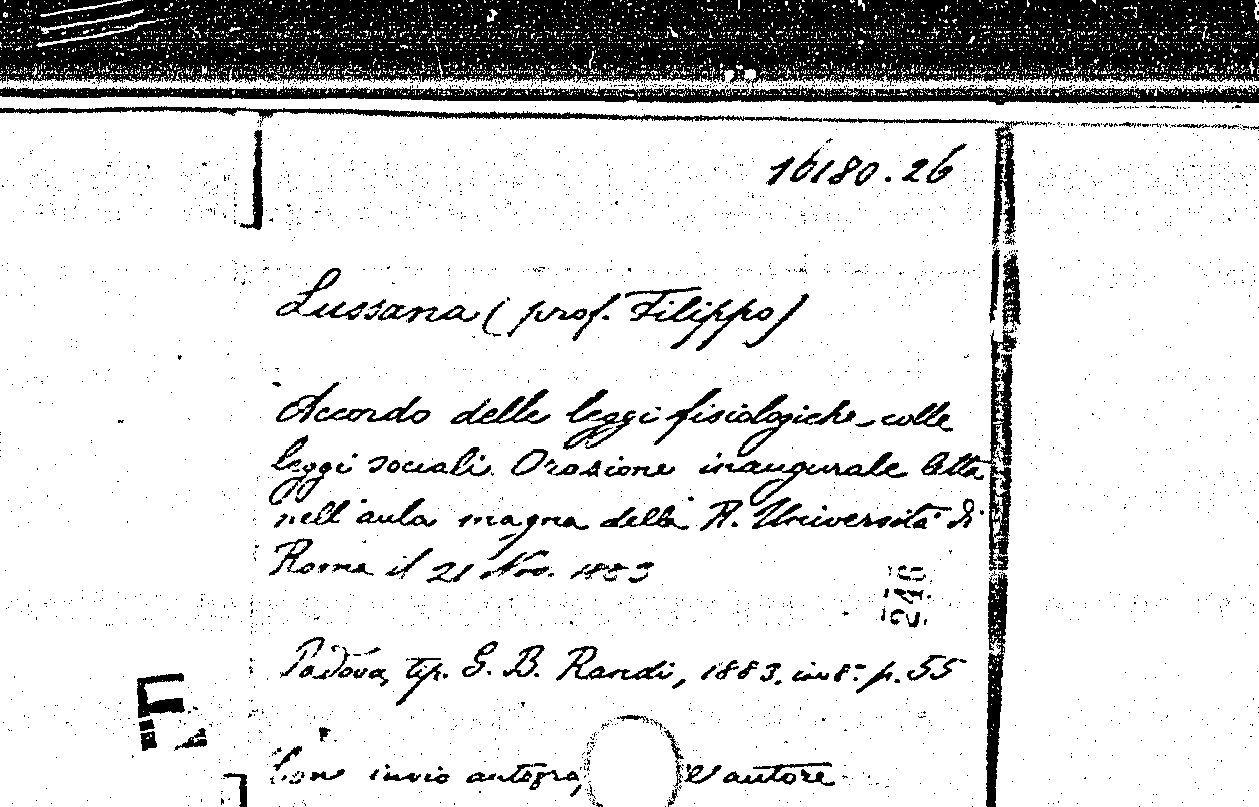 16180.26
Lussana (prof. Filippo)
Accordo delle leggi fisiologiche colle
leggi sociali. Orazione inaugurale letta
nell'aula magna della R. Università di
Roma il 21 Nov. 1883
246
Padova, tip. G. B. Randi, 1883. in 8° p. 55
Con invio autogra l'autore